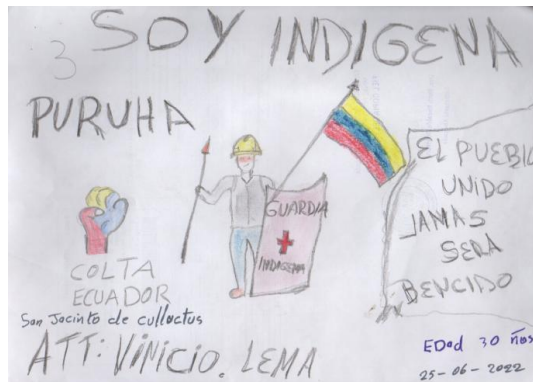 SOY INDIGENA
3
PURUHA
GUARDIA
INDIGENA
EL PUEBLO
UNIDO
JAMAS
SERA
BENCIDO
COLTA
ECUADOR
San Jacinto de culluctus
ATT: VINICIO. LEMA
EDad 30 ños
25-06-2022